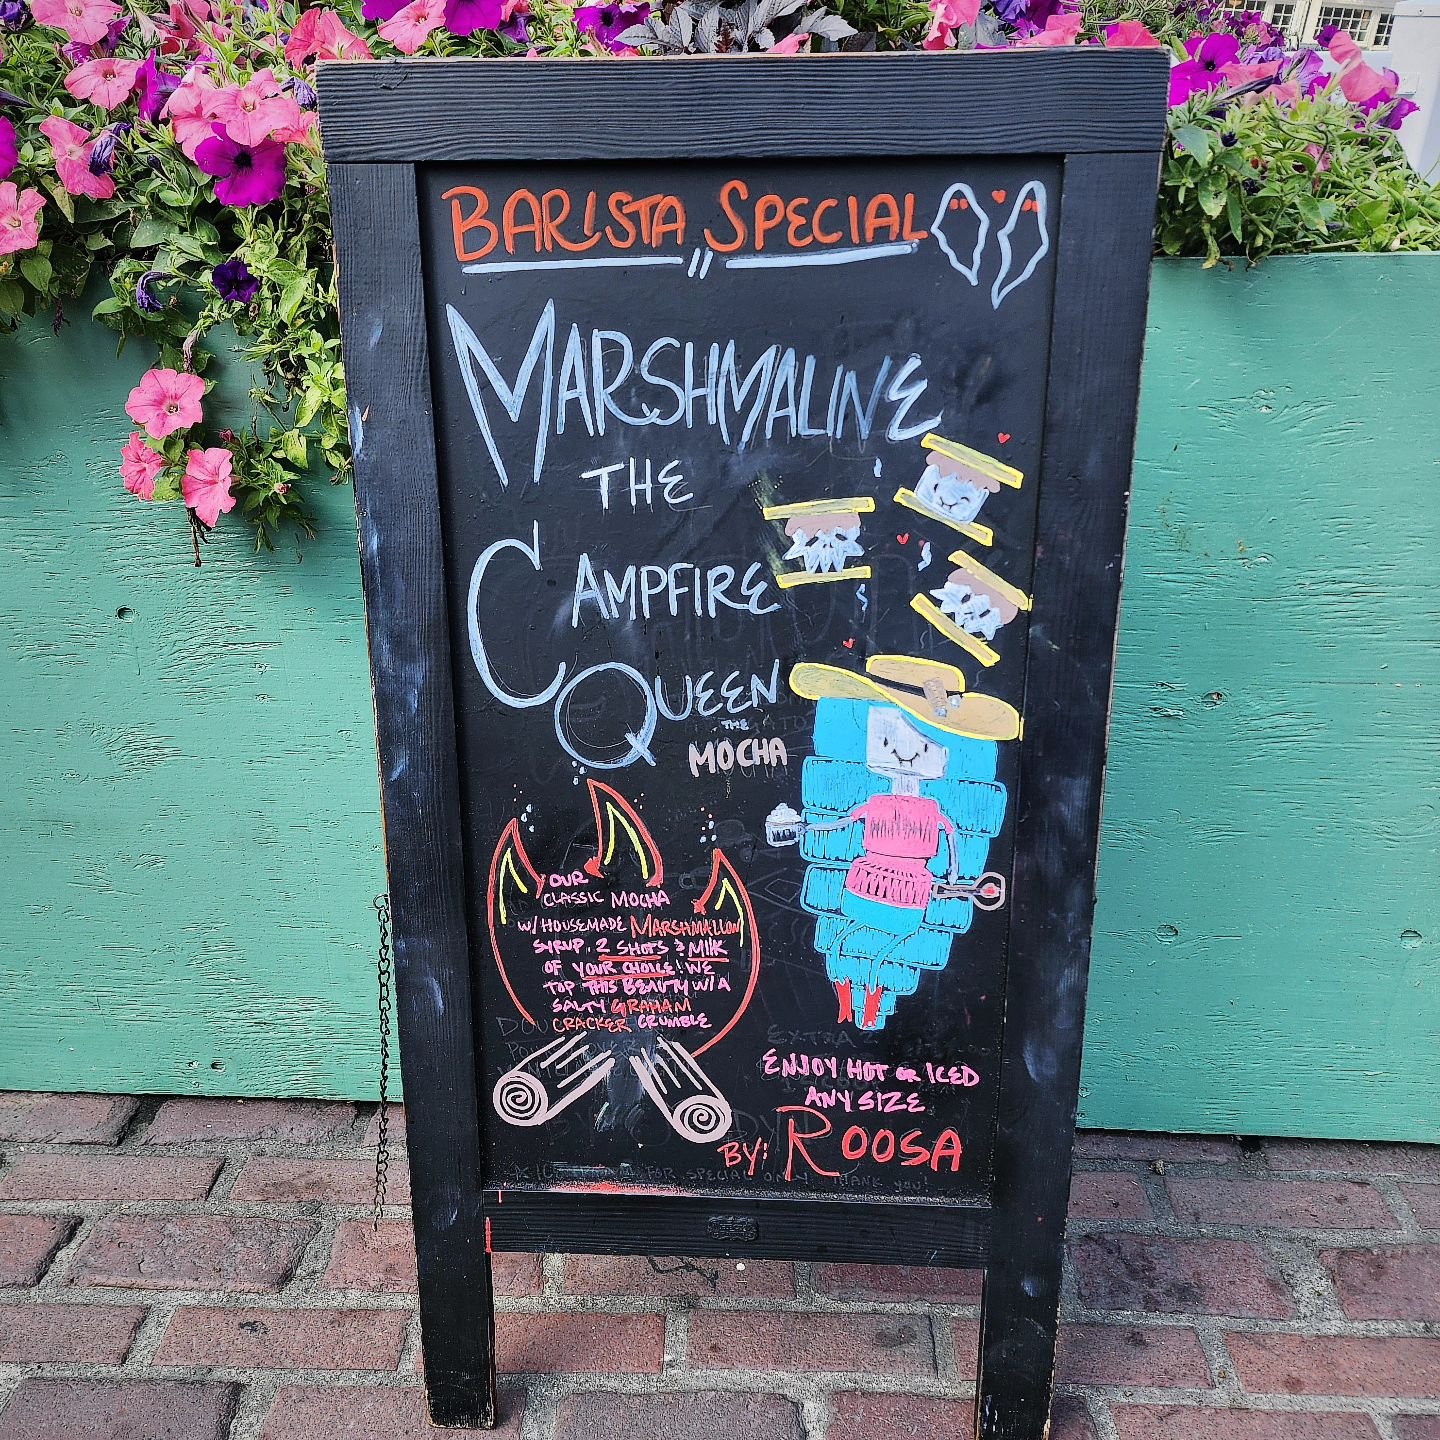 BARISTA SPECIAL
MARSHMALINE
THE
CAMPFIRE
QUEEN
THE
MOCHA
OUR
CLASSIC MOCHA
W/ HOUSEMADE MARSHMALLOW
SYRUP. 2 SHOTS & MILK
OF YOUR CHOICE! WE
TOP THIS BEAUTY W/ A
SALTY GRAHAM
CRACKER CRUMBLE
ENJOY HOT OR ICED
ANY SIZE
BY: ROOSA
FOR SPECIAL ONLY. THANK YOU!